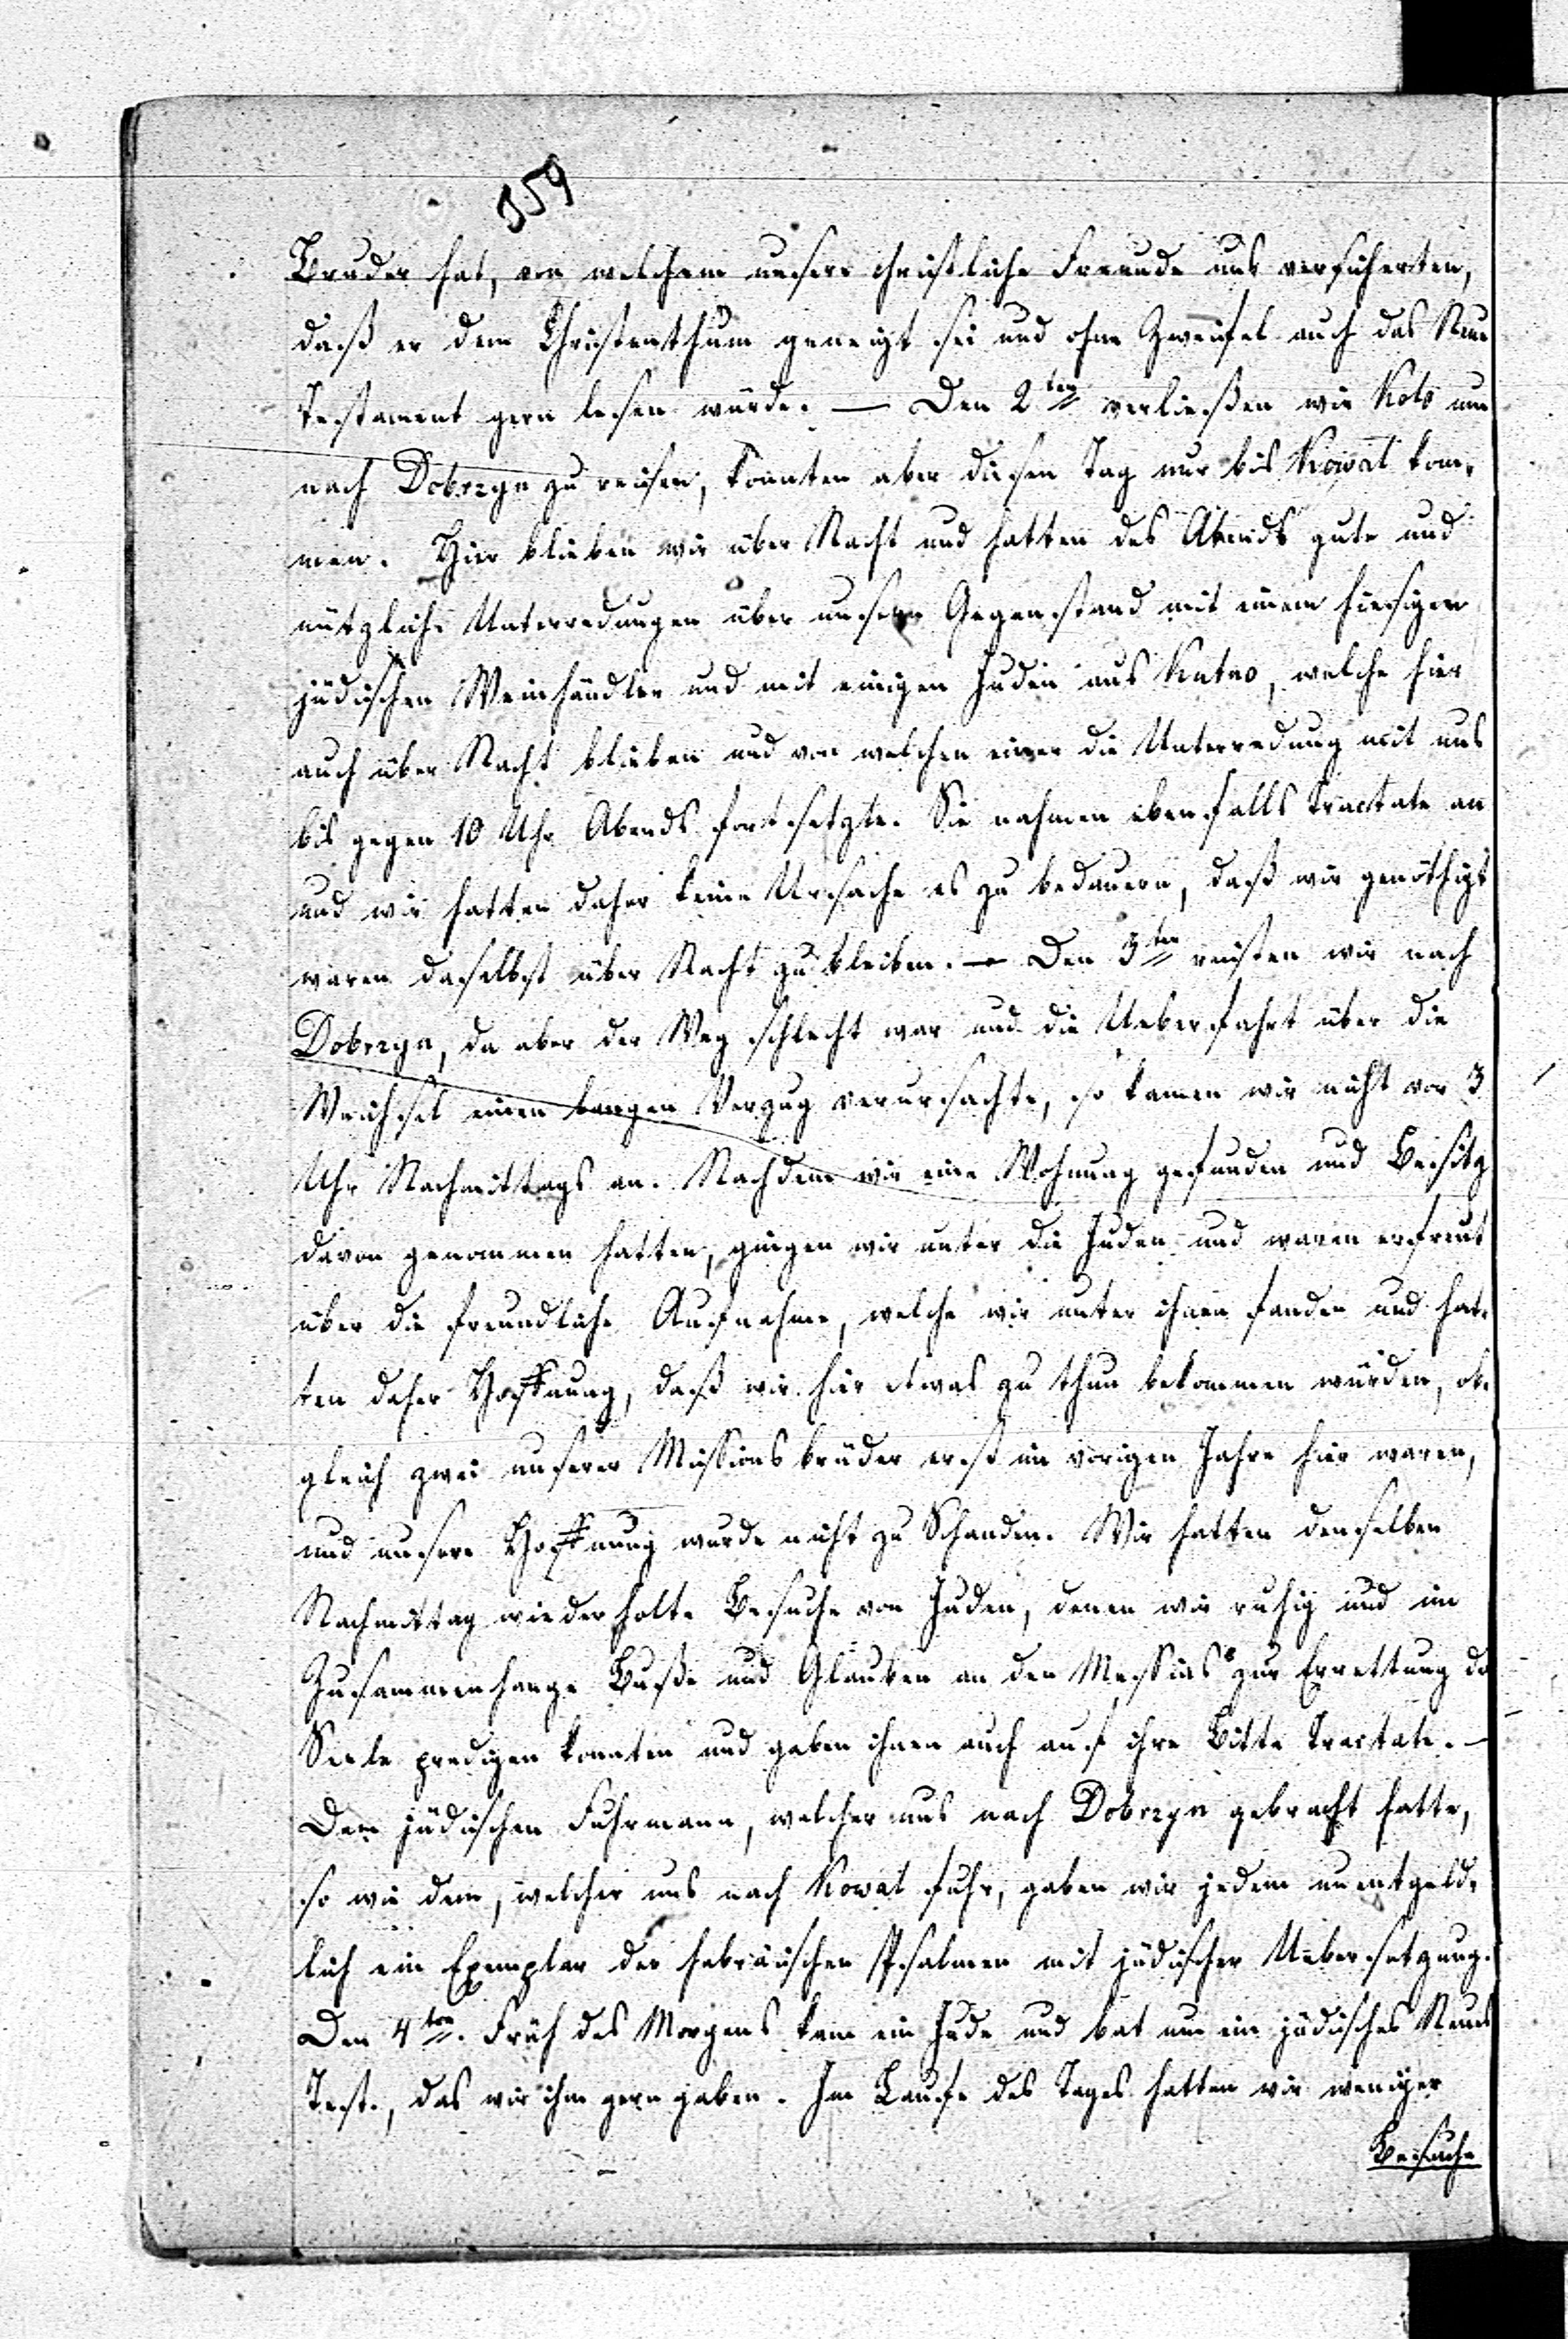 559
Bruder hat, von welchem unsere christliche Freunde uns versicherten,
daß er dem Christenthum geneigt sei und ohne Zweifel auch das Neue
Testament gern lesen würde. — Den 2ten verließen wir Kolo um
nach Dobrzyn zu reisen, konnten aber diesen Tag nur bis Kowal kom-
men. Hier blieben wir über Nacht und hatten des Abends gute und
nützliche Unterredungen über unsern Gegenstand mit einem hiesigen
jüdischen Weinhändler und mit einigen Juden aus Kutno, welche hier
auch über Nacht blieben und von welchen einer die Unterredung mit uns
bis gegen 10 Uhr Abends fortsetzte. Sie nahmen ebenfalls Tractate an
und wir hatten daher keine Ursache es zu bedauern, daß wir genöthigt
waren daselbst über Nacht zu bleiben. — Den 3ten reisten wir nach
Dobrzyn, da aber der Weg schlecht war und die Ueberfahrt über die
Weichsel einen langen Verzug verursachte, so kamen wir nicht vor 3
Uhr Nachmittags an. Nachdem wir eine Wohnung gefunden und Besitz
davon genommen hatten, gingen wir unter die Juden und waren erfreut
über die freundliche Aufnahme, welche wir unter ihnen fanden und hat-
ten daher Hoffnung, daß wir hier etwas zu thun bekommen würden, ob-
gleich zwei unserer Missionsbrüder erst im vorigen Jahre hier waren,
und unsere Hoffnung wurde nicht zu Schanden. Wir hatten denselben
Nachmittag wiederholte Besuche von Juden, denen wir ruhig und im
Zusammenhange Buße und Glauben an den Messias zur Errettung der
Seele predigen konnten und gaben ihnen auch auf ihre Bitte Tractate. —
Dem jüdischen Fuhrmann, welcher uns nach Dobrzyn gebracht hatte,
so wie dem, welcher uns nach Kowal fuhr, gaben wir jedem unentgeld-
lich ein Exemplar der hebräischen Psalmen mit jüdischer Uebersetzung.
Den 4ten. Früh des Morgens kam ein Jude und bat um ein jüdisches Neues
Test., das wir ihm gern gaben. Im Laufe des Tages hatten wir weniger
Besuche